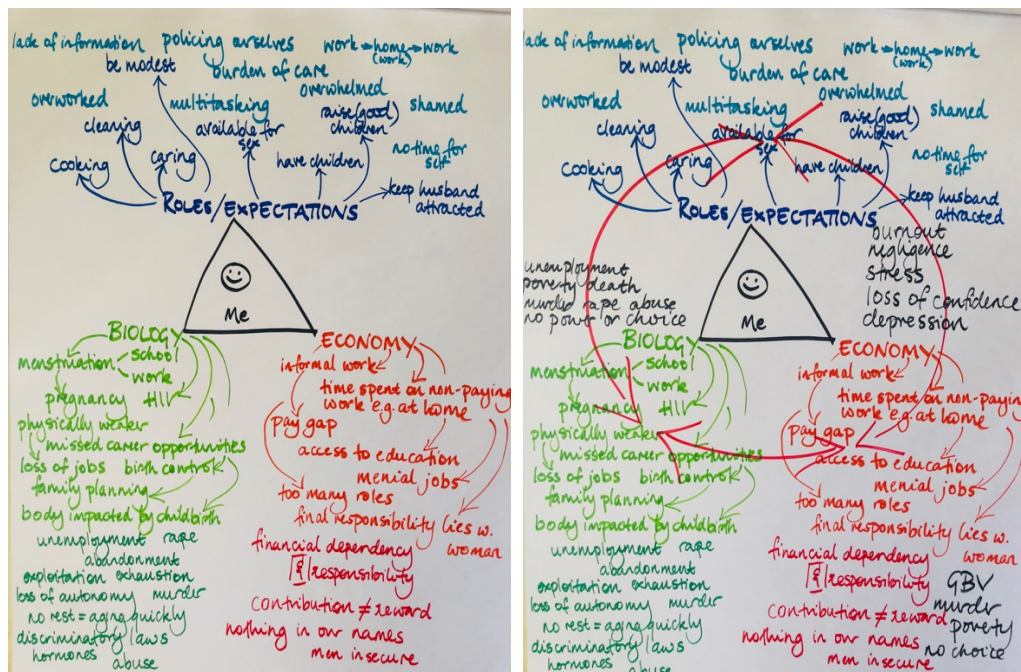 lack of information policing ourselves work → home → work
(work)
be modest burden of care
overwhelmed
overworked multitasking raise (good) shamed
cleaning available for children
sex
caring have children no time for
self
cooking keep husband
attracted
ROLES/EXPECTATIONS
Me
BIOLOGY
menstruation school
work
pregnancy
physically weaker
missed career opportunities
loss of jobs birth control
family planning
body impacted by childbirth
unemployment rape
abandonment
exploitation exhaustion
loss of autonomy murder
no rest = aging quickly
discriminatory laws
hormones abuse
ECONOMY
informal work
time spent on non-paying
work e.g. at home
pay gap
access to education
menial jobs
too many roles
final responsibility lies w.
woman
financial dependency
& responsibility
contribution ≠ reward
nothing in our names
men insecure
lack of information policing ourselves work → home → work
(work)
be modest burden of care
overwhelmed
overworked multitasking raise (good) shamed
cleaning available for children
sex
caring have children no time for
self
cooking keep husband
attracted
ROLES/EXPECTATIONS
burnout
negligence
stress
loss of confidence
depression
unemployment
poverty death
murder rape abuse
no power or choice
Me
BIOLOGY
menstruation school
work
pregnancy
physically weaker
missed career opportunities
loss of jobs birth control
family planning
body impacted by childbirth
unemployment rape
abandonment
exploitation exhaustion
loss of autonomy murder
no rest = aging quickly
discriminatory laws
hormones abuse
ECONOMY
informal work
time spent on non-paying
work e.g. at home
pay gap
access to education
menial jobs
too many roles
final responsibility lies w.
woman
financial dependency
& responsibility
contribution ≠ reward
nothing in our names
men insecure
GBV
murder
poverty
no choice